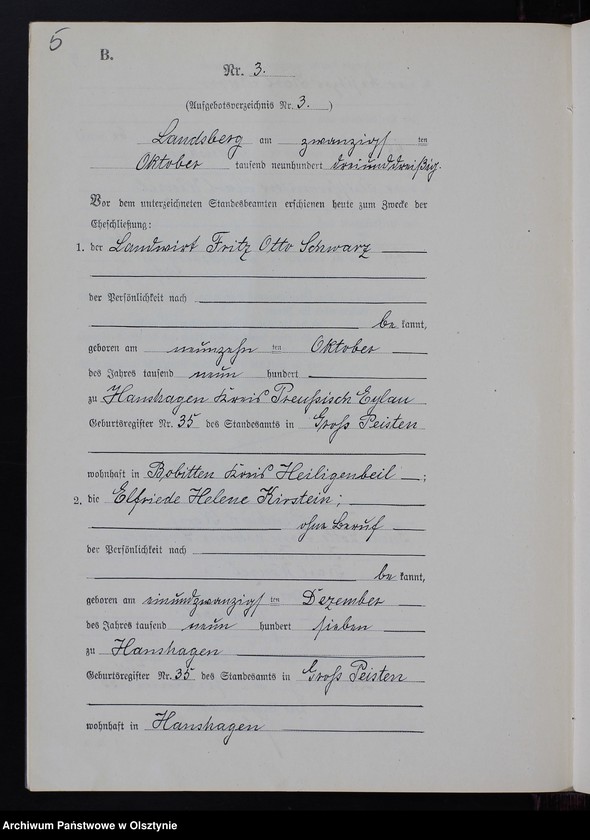 5
B.
Nr. 3.
(Aufgebotsverzeichnis Nr. 3.)
Landsberg am zwanzigsten
Oktober tausend neunhundert dreiunddreißig.
Vor dem unterzeichneten Standesbeamten erschienen heute zum Zwecke der
Eheschließung:
1. der Landwirt Fritz Otto Schwarz
der Persönlichkeit nach
be kannt,
geboren am neunzehn ten Oktober
des Jahres tausend neun hundert
zu Hanshagen Kreis Preußisch Eylau
Geburtsregister Nr. 35 des Standesamts in Gross Peisten
wohnhaft in Bobitten Kreis Heiligenbeil ;
2. die Elfriede Helene Kirstein;
ohne Beruf
der Persönlichkeit nach
be kannt,
geboren am einundzwanzigs ten Dezember
des Jahres tausend neun hundert sieben
zu Hanshagen
Geburtsregister Nr. 35 des Standesamts in Gross Peisten
wohnhaft in Hanshagen
Archiwum Państwowe w Olsztynie